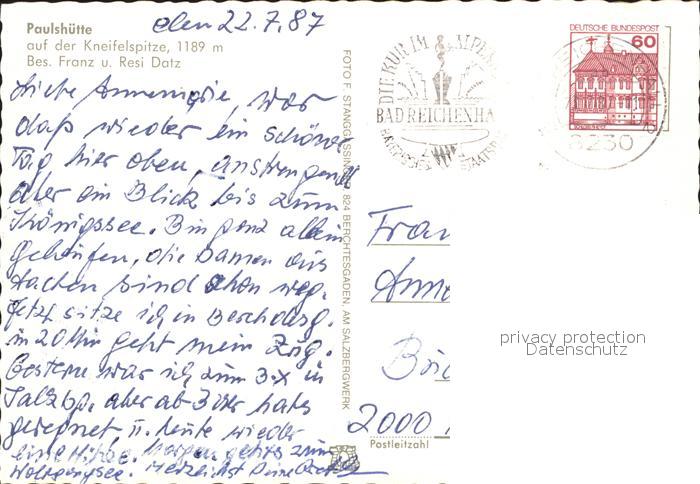 Paulshütte
auf der Kneifelspitze, 1189 m
Bes. Franz u. Resi Datz
den 22.7.87
Liebe Annemarie, war
daß wieder ein schöner
Tag hier oben, anstrengend
aber ein Blick bis zum
Königssee. Bin ganz allein
gelaufen, die Damen aus
Aachen sind schon weg.
Jetzt sitze ich in Berchtesg.
in 20 Min geht mein Zug.
Gestern war ich zum 3.x in
Salzbg. aber ab 3 Uhr hats
geregnet u. heute wieder
eine Hitze. Morgen gehts zum
Wolfgangsee. Herzlichst Deine
FOTO F. STANGGASSINGER, 824 BERCHTESGADEN, AM SALZBERGWERK
DIE KUR IM ALPEN
BAD REICHENHA
BAYERISCHES STAATSB
DEUTSCHE BUNDESPOST
60
8230
Frau
Anne
2000
Postleitzahl
privacy protection
Datenschutz